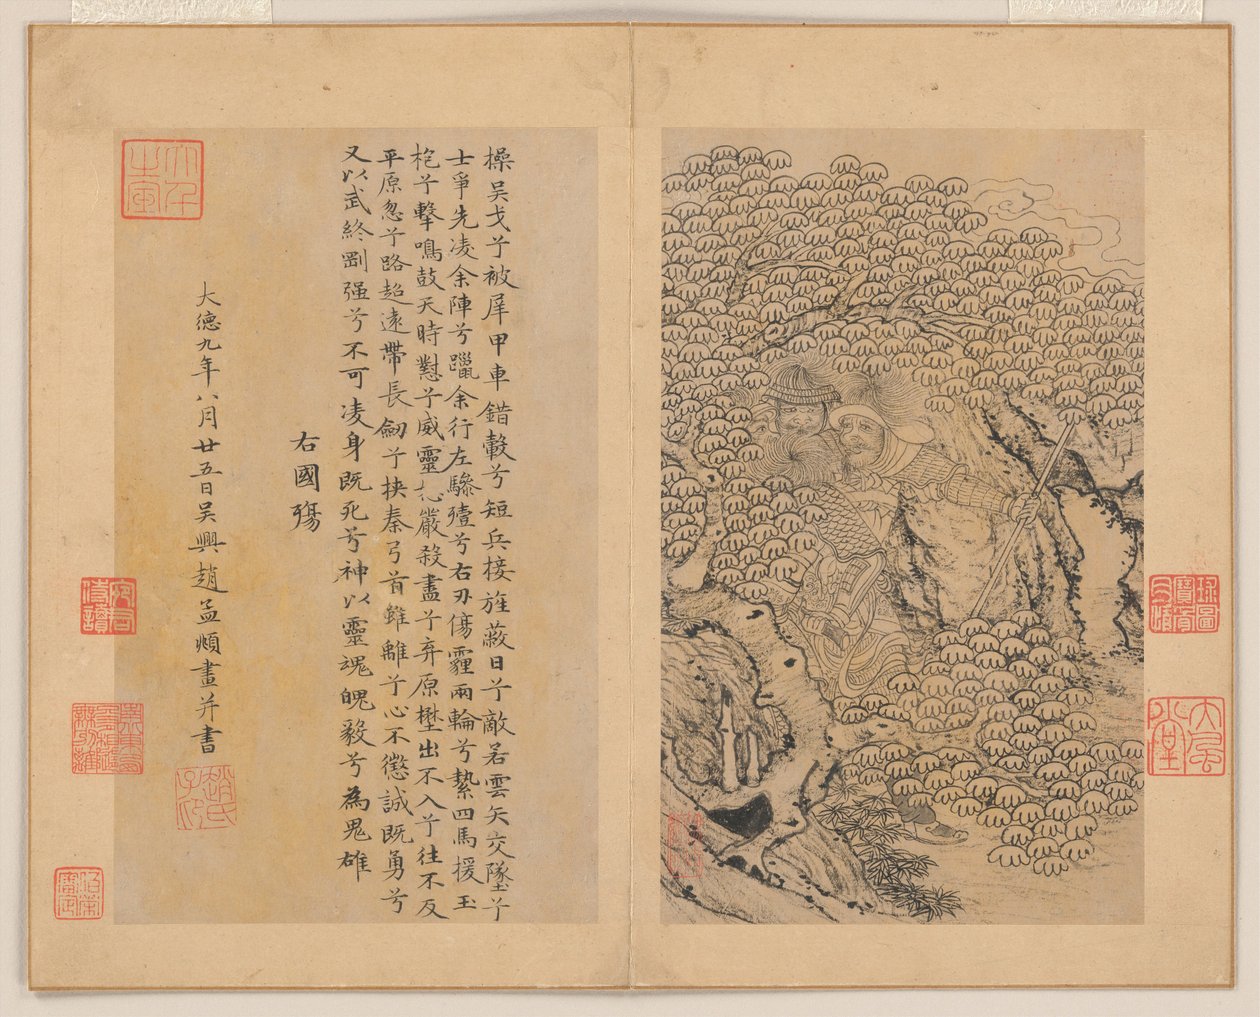 操吳戈兮被犀甲車錯轂兮短兵接旌蔽日兮敵若雲矢交墜兮
士爭先凌余陣兮躐余行左驂殪兮右刃傷霾兩輪兮縶四馬援玉
枹兮擊鳴鼓天時懟兮威靈怒嚴殺盡兮弃原壄出不入兮往不反
平原忽兮路超遠帶長劒兮挾秦弓首雖離兮心不懲誠既勇兮
又以武終剛强兮不可凌身既死兮神以靈魂魄毅兮為鬼雄
右國殤
大德九年八月廿五日吳興趙孟頫畫并書
趙氏子昂
大千之寶
球圖寶骨肉情
大風堂